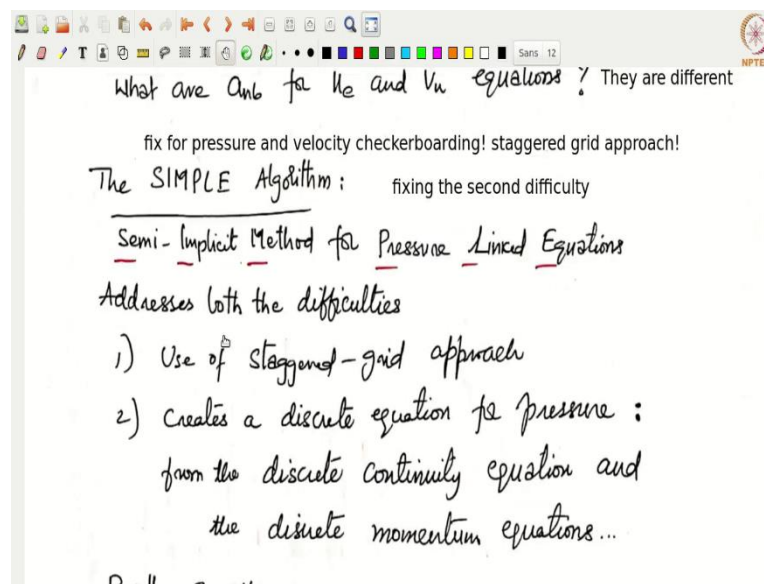 Sans 12
NPTE
What are anb for ue and vn equations ? They are different
fix for pressure and velocity checkerboarding! staggered grid approach!
The SIMPLE Algorithm : fixing the second difficulty
Semi-Implicit Method for Pressure Linked Equations
Addresses both the difficulties
1) Use of staggered-grid approach
2) Creates a discrete equation for pressure :
from the discrete continuity equation and
the discrete momentum equations...